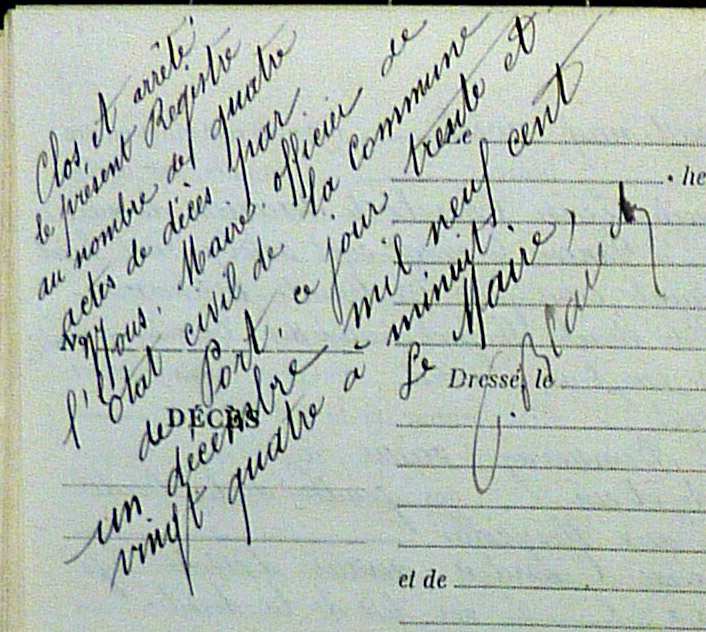 Clos, et arrêté
le présent Registre
au nombre de quatre
actes de décès, par
Nous, Maire, officier de
l'Etat civil de la commune
de Port, ce jour trente et
un décembre mil neuf cent
vingt quatre à minuit.
Le Maire,
he
Dressé, le
DÉCÈS
et de